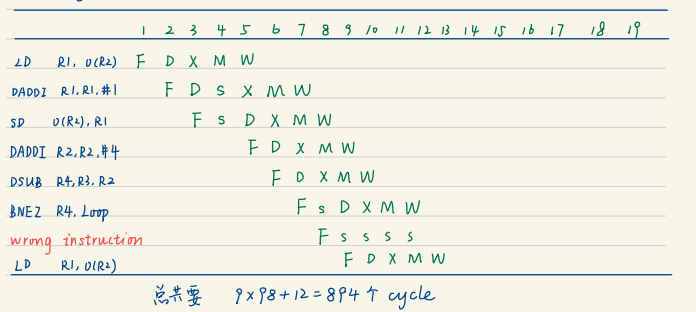 1 2 3 4 5 6 7 8 9 10 11 12 13 14 15 16 17 18 19
LD R1, 0(R2) F D X M W
DADDI R1,R1,#1 F D S X M W
SD 0(R2), R1 F S D X M W
DADDI R2,R2,#4 F D X M W
DSUB R4,R3,R2 F D X M W
BNEZ R4, Loop F S D X M W
wrong instruction F S S S S
LD R1, 0(R2) F D X M W
总共要 9×98+12=894个 cycle